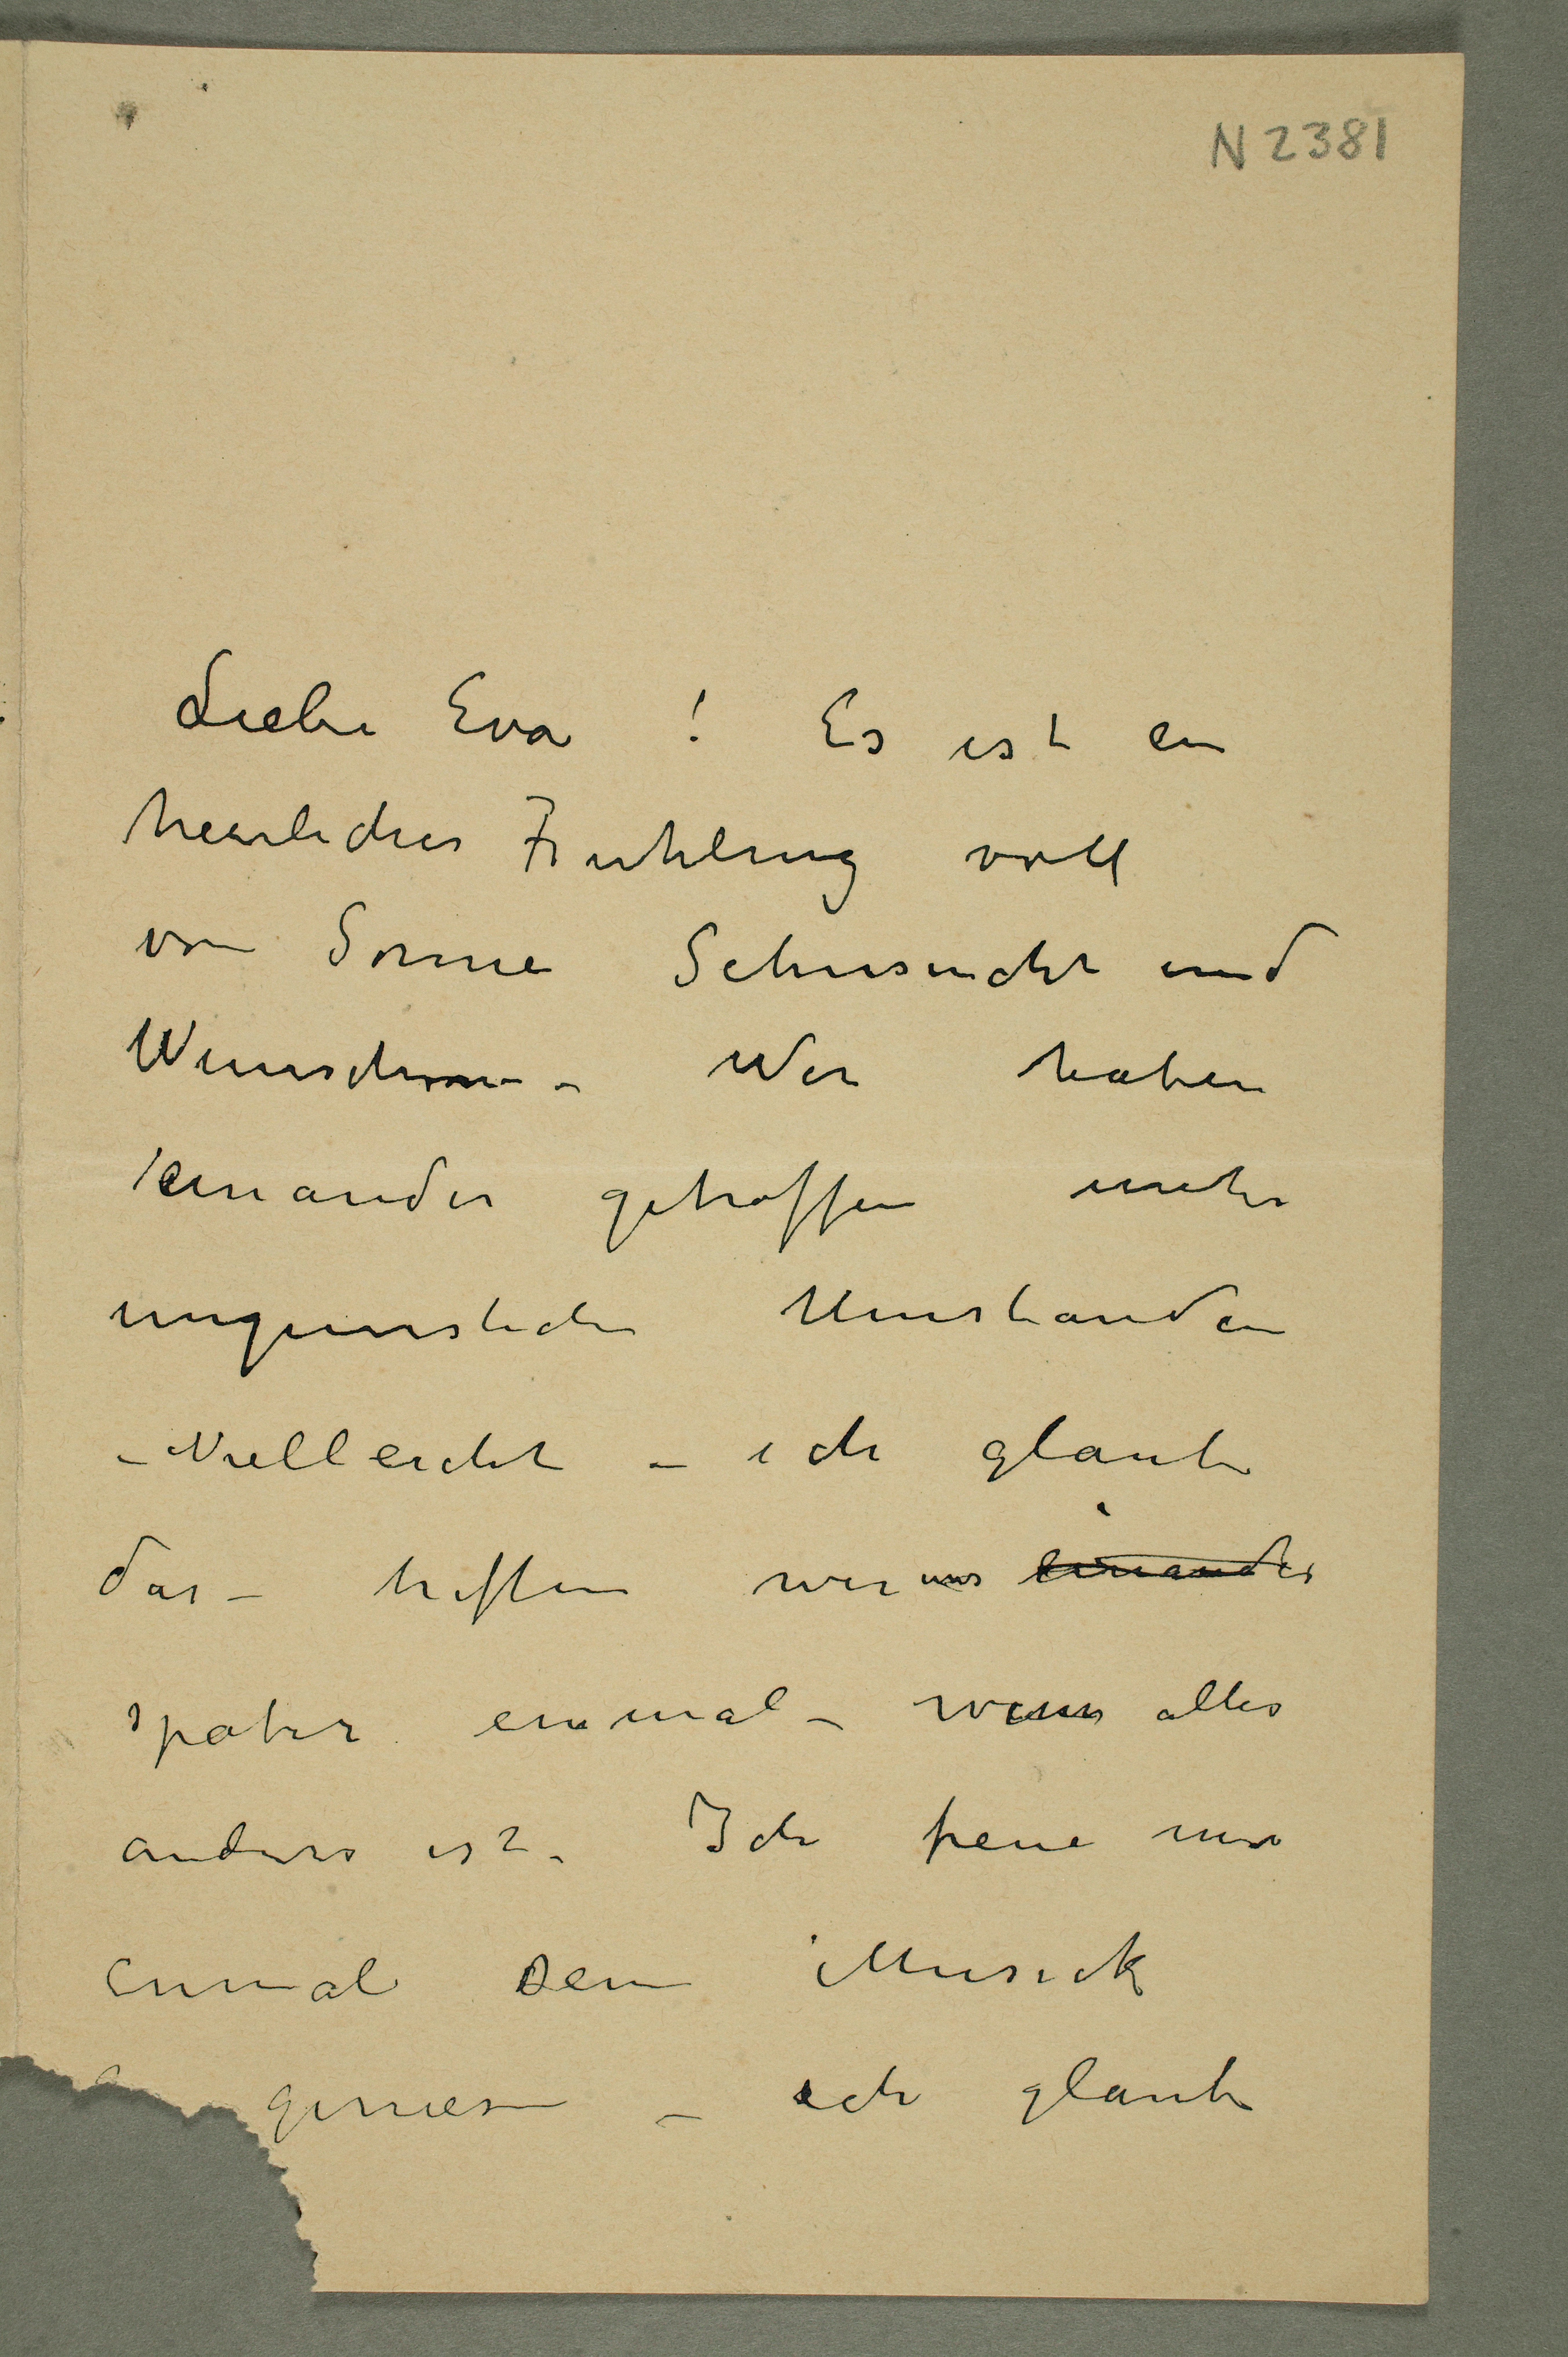 N 2381
Liebe Eva ! Es ist ein
herrlicher Fruhling voll
von Sonne Sehnsucht und
Wunschen – Wir haben
einander getroffen unter
ungunstichen Umstanden
– Vielleicht – ich glaube
das – treffen wir uns einander
später einmal – wenn alles
anders ist. Ich freue mir
einmal Dein Musick
geniesen – ich glaube